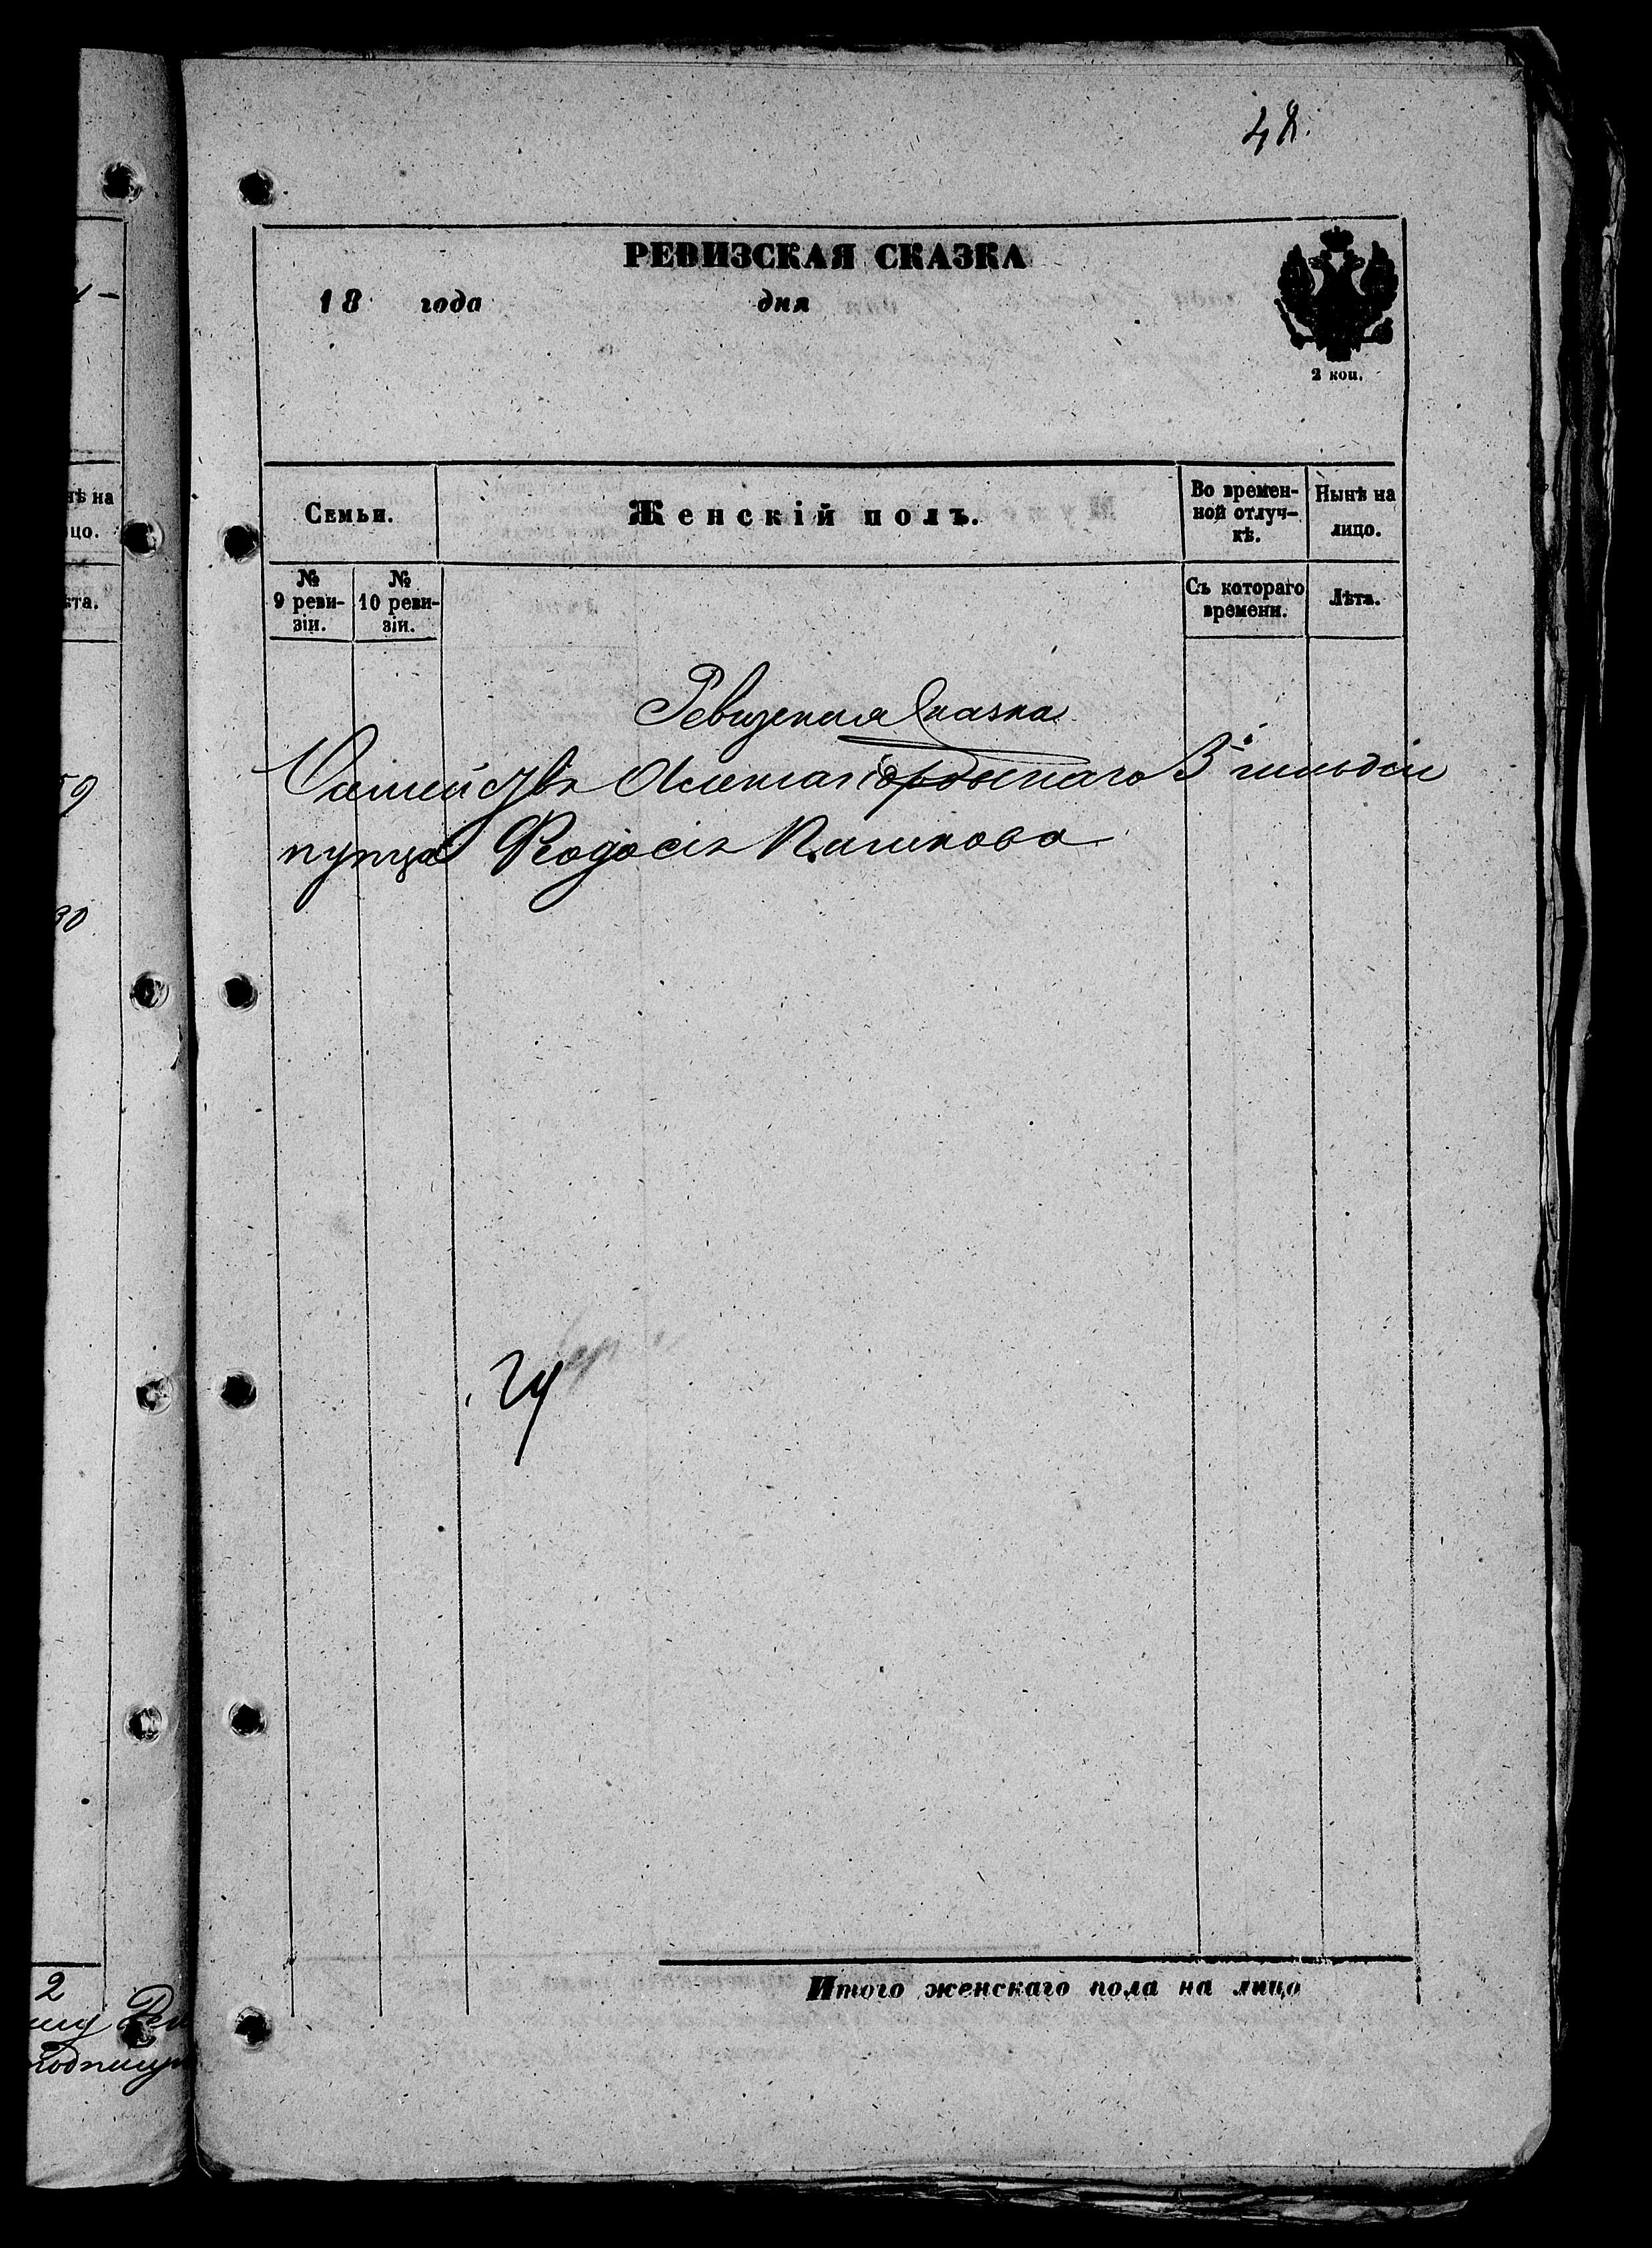 48.
РЕВИЗСКАЯ СКАЗКА
18 года дня
2 коп.
Семьи.
Женскій полъ.
Во времен-
ной отлуч-
кѣ.
Нынѣ на
лицо.
№
9 реви-
зіи.
№
10 реви-
зіи.
Съ котораго
времени.
Лѣта.
Ревизская Сказка
Семейству Александровскаго 3й гильдіи
купца Ѳеодосія
Итого женскаго пола на лицо
нѣ на
цо.
ѣта.
59
30
2